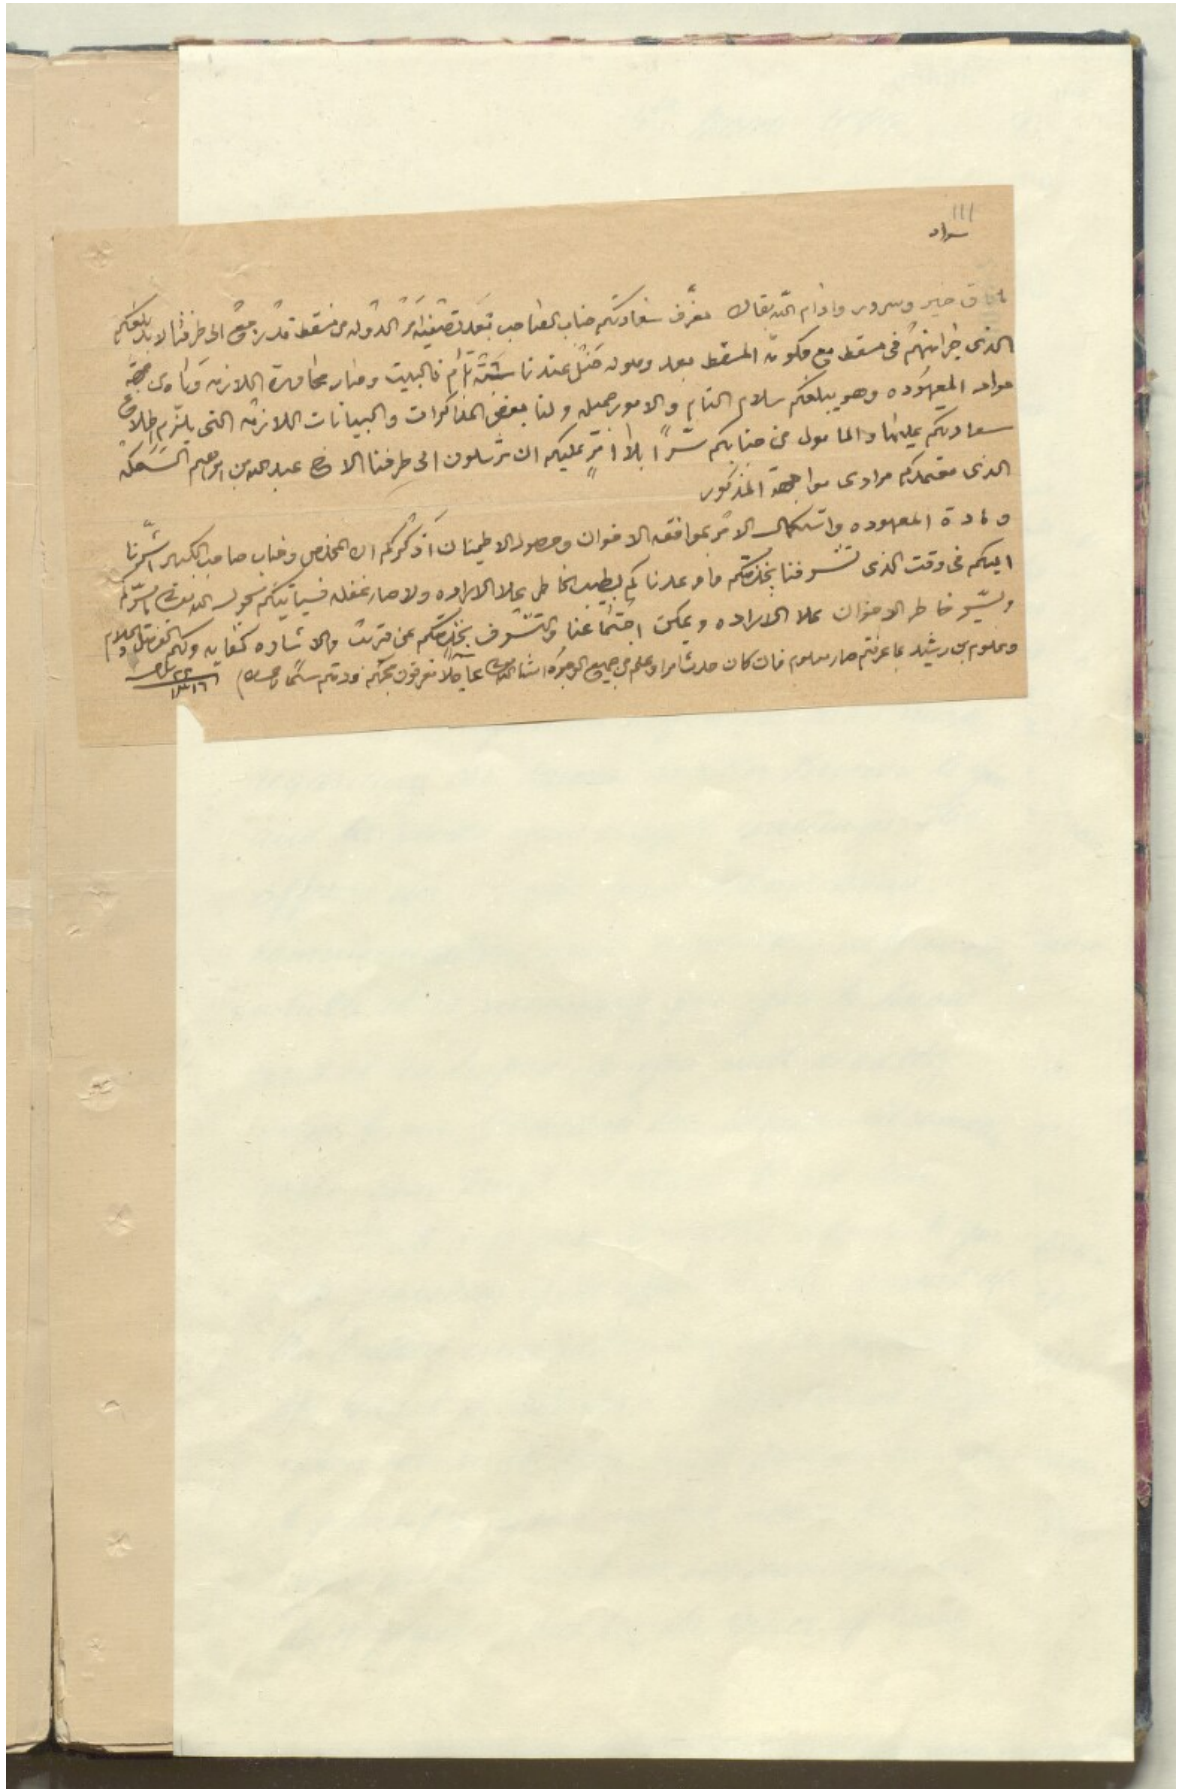 ١١١
سواد
خير وسرور وادام الله بقاك نعرف سعادتكم جناب الصاحب بعد تصفية امر الدوله من مسقط قد رجع الى طرفنا لابد بلغكم
الذي جرا منهم في مسقط مع حكومة المسقط بعد وصوله عندنا ستة ايام فالبيت وصار مخاصرة اللازمه
مواد المعهوده وهو يبلغكم سلام التام والامور جميله ولنا بعض المذاكرات والبيانات اللازمه التي يلتزم اطلاع
سعادتكم عليها والمامول من جنابكم سراً بلا امرٍ عليكم ان ترسلون الى طرفنا الاخ عبدالله بن ابرهيم السمكه
الذي معتمدكم مرادي مواجهة المذكور
ومادة المعهوده واستكمال الامر بموافقه الاخوان وحصول الاطمينان اذكركم ان المخلص وجناب صاحب الكبير اشرنا
اليكم في وقت الذي تشرفنا بخدمتكم وعدناكم بطيب الخاطر علا الاراده ولا صار غفله فسياتيكم بحول الله
خاطر الاخوان علا الاراده ويمكن اجتماعنا والتشرف بخدمتكم عن قريب والاشاره كفايه والسلام
وعلوم بن رشيد ما عرفتم صار معلوم فان كان حدث امراً وعلم من جميع الوجوه انشاالله عاجلاً تعرفون محبكم ودمتم سالمًا